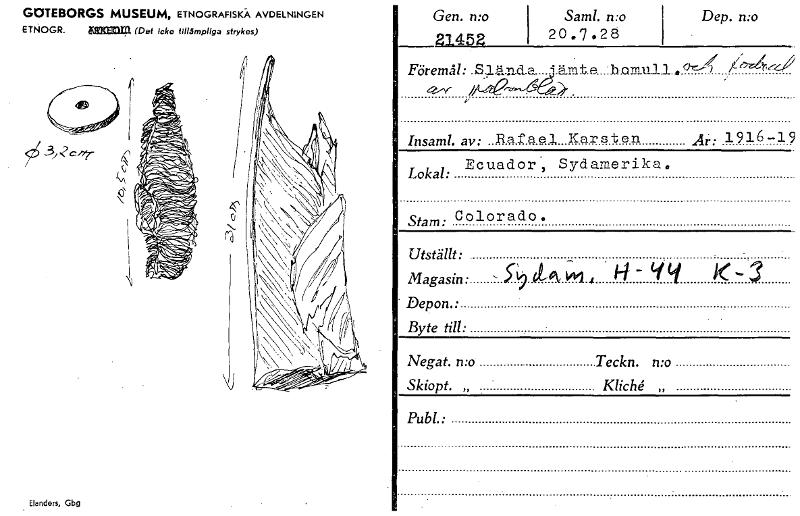 GÖTEBORGS MUSEUM, ETNOGRAFISKA AVDELNINGEN
ETNOGR. ARKEOL. (Det icke tillämpliga strykes)
ϕ 3,2cm
10,5cm
31cm
Elanders, Gbg
Gen. n:o Saml. n:o Dep. n:o
21452 20.7.28
Föremål: Slända jämte bomull. och fodral
av palmblad.
Insaml. av: Rafael Karsten År: 1916-19
Lokal: Ecuador, Sydamerika.
Stam: Colorado.
Utställt:
Magasin: Sydam. H-44 K-3
Depon.:
Byte till:
Negat. n:o Teckn. n:o
Skiopt. „ Kliché „
Publ.: